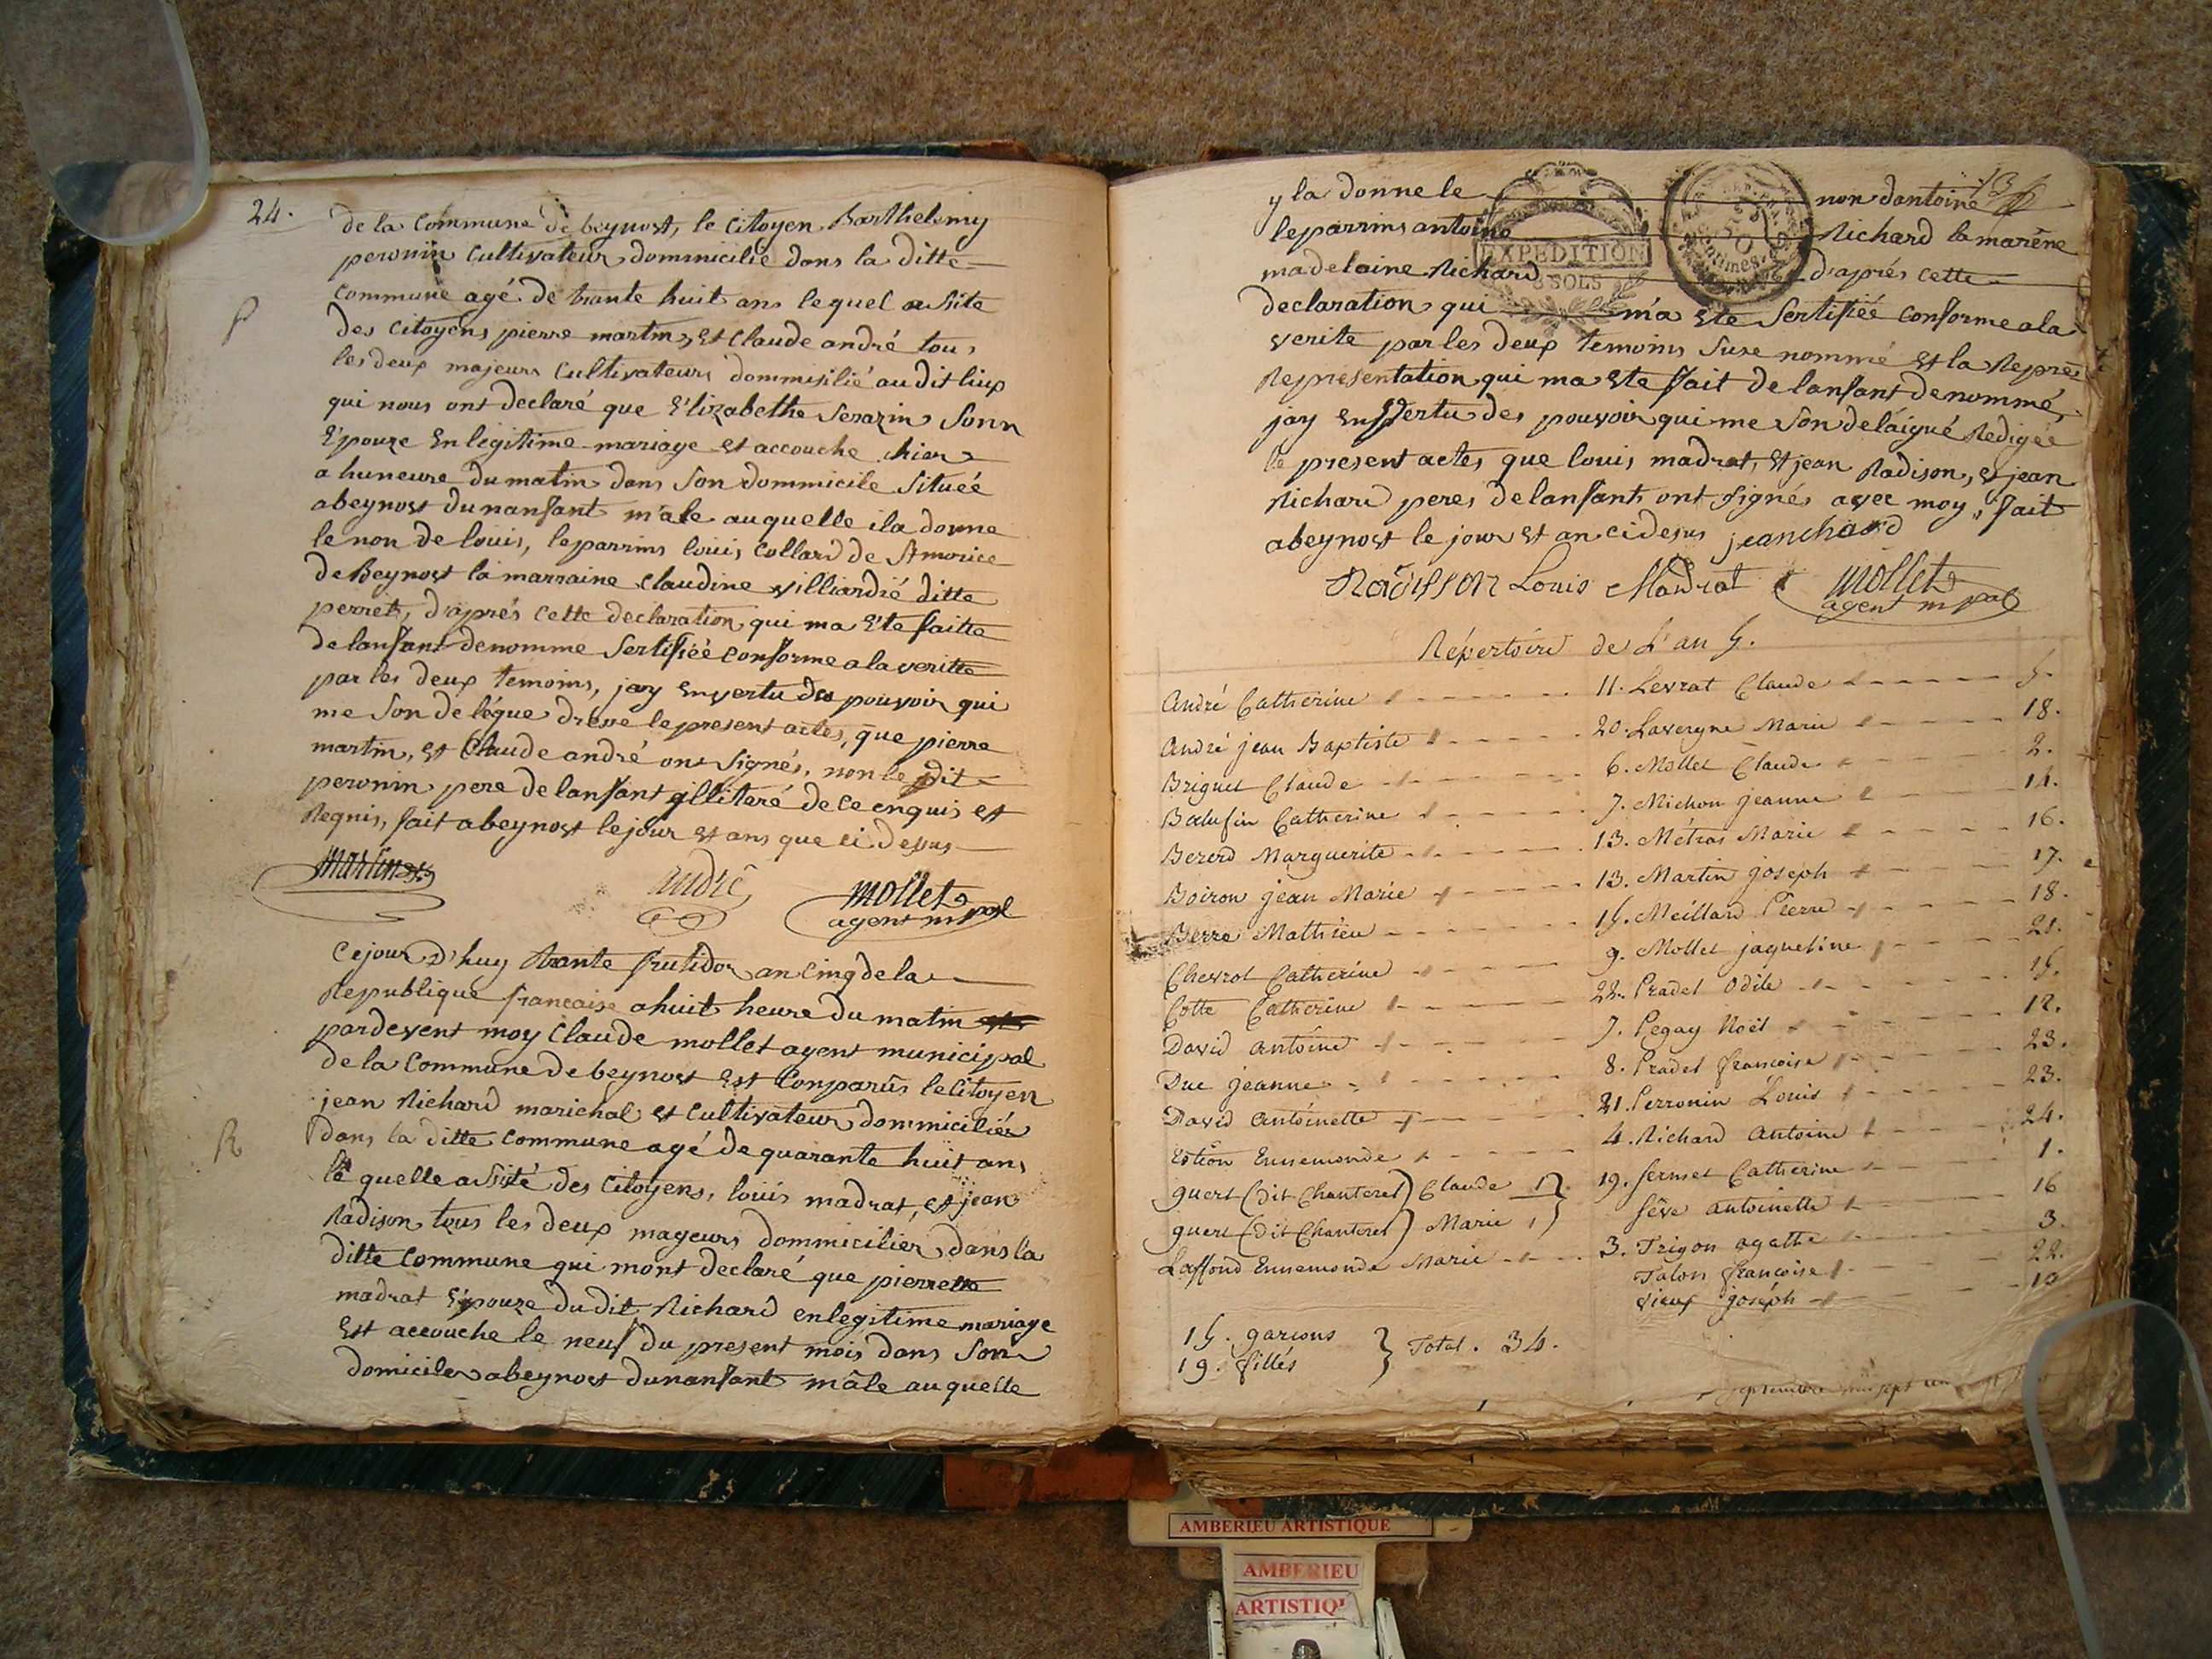 24.
de la Commune de beynost, le Citoyen Barthelemy
peronin Cultivateur dommicilié dans la ditte
Commune agé de trante huit ans lequel assite
P
des Citoyens pierre martin, et Claude andré tous
les deux majeurs Cultivateurs dommisilié au dit liup
qui nous ont declaré que Elizabethe Serazin Sonn
Epouze En legitime mariage et accouche hier
a huneure du matin dans Son dommicile Situéé
abeynost dunanfant mâle auquelle ila donne
le non de louis, leparrins louis Collard de St morice
de Beynost la marraine Claudine villiardié ditte
perret, d'aprés cette declaration qui ma Eté faitte
de lanfant denomme Sertifiéé conforme a la veritte
par les deux temoins, jay en vertu des pouvoir qui
me Son delégue dréve le present actes, que pierre
martin, et Claude andré ont Signés, non le dit
peronin pere de lanfant illiteré de ce enquis et
Requis, fait abeynost le jour et ans que ci desus
martin
andré
mollet
agent mpal
Cejour D'huy trante frutidor an Cinq de la
Republique francaise a huit heure du matin
pardevent moy Claude mollet agent municipal
de la Commune de beynost est Conparûs le Citoyen
jean Richard marichal et Cultivateur dommicilier
R
dans la ditte commune agé de quarante huit ans
le quelle assité des Citoyens, louis madrat, et jean
Radison tous les deux mageurs dommicilier dans la
ditte commune qui mont declaré que pierrette
madrat Epouze dudit Richard en legitime mariage
Est accouche le neuf du present mois dans Son
domicile abeynost dunanfant mâle auquelle
y la donne le non dantoine
leparrins antoine Richard la marène
EXPEDITION
8 SOLS
madelaine Richard d'aprés cette
declaration qui m'a Ete Sertifiéé conforme a la
verite par les deux temoins Suse nommé et la Repre
Representation qui ma Ete fait de lanfant denommé,
jay en vertu des pouvoir qui me Son delaigué Redigéé
le present actes que louis madrat, et jean Radison, et jean
Richard peres de lanfant ont signés avec moy, fait
abeynost le jour et an ci desus jeanchard
Radisson Louis Madrat mollet
agent mpal
Répertoire de L'an 5.
André Catherine 11. Levrat Claude 5.
André jean Baptiste 20. Lavergne Marie 18.
Briguet Claude 6. Mollet Claude 2.
Balufin Catherine 7. Michon jeanne 14.
Bererd Marguerite 13. Métras Marie 16.
Boiron jean Marie 13. Martin joseph 17.
Berre Mathieu 15. Meillard Pierre 18.
Chevrot Catherine 9. Mollet jaqueline 21.
Cotte Catherine 22. Pradel Odile 15.
David antoine 7. Pegay Noël 12.
Duc jeanne 8. Pradel francoise 23.
David Antoinette 21. Perronin Louis 23.
Estion Ennemonde 4. Richard Antoine 24.
guert (dit Chanteret) Claude 19. Sermet Catherine 1.
guert (dit Chanteret) Marie Sêve antoinette 16
Laffond Ennemonde Marie 3. Trigon agathe 3.
Talon francoise 22.
vieux joséph 10
15. garcons
19. filles
Total. 34.
AMBERIEU ARTISTIQUE
AMBERIEU
ARTISTIQU